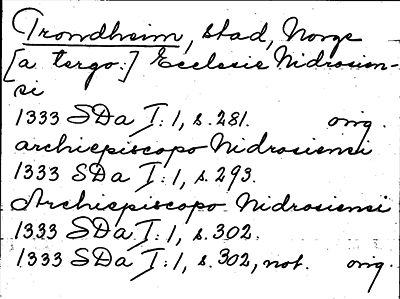 Trondheim, stad, Norge
[a tergo:] Ecclesie Nidrosien-
si
1333 SDa I:1, s. 281. orig.
archiepiscopo Nidrosiensi
1333 SDa I:1, s. 293.
Archiepiscopo Nidrosiensi
1333 SDa I:1, s. 302.
1333 SDa I:1, s. 302, not. orig.